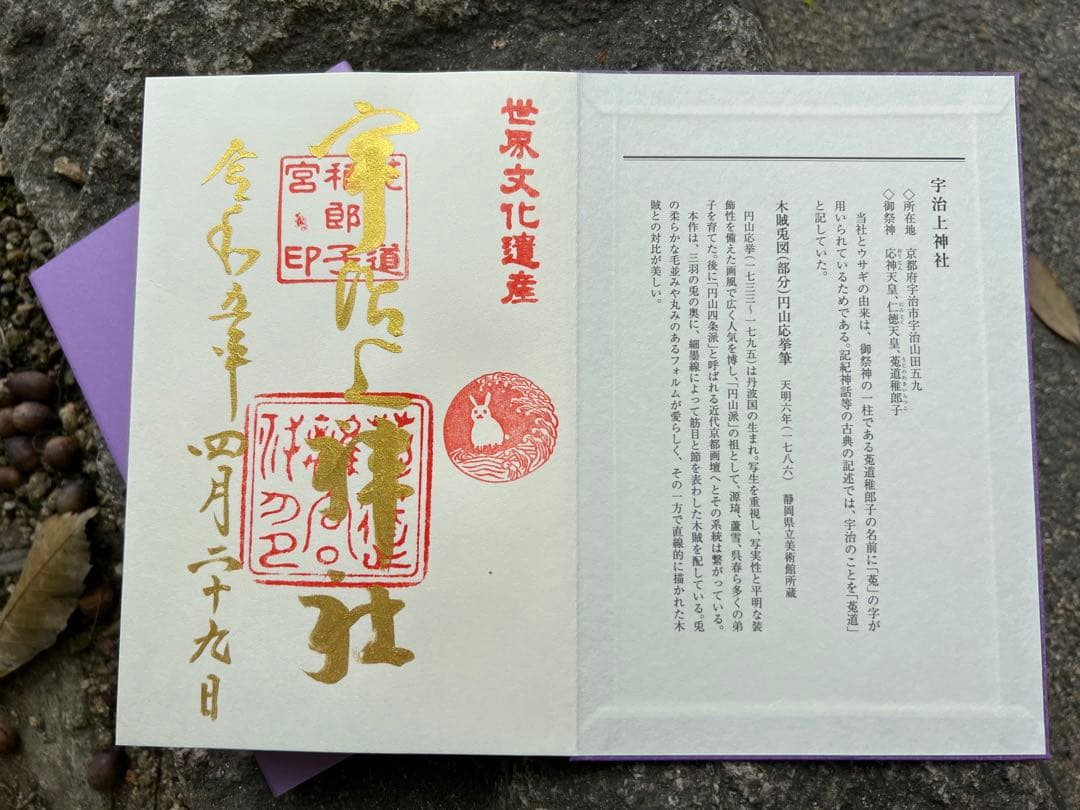 宇治上神社
◇所在地　京都府宇治市宇治山田五九
◇御祭神　応神天皇、仁徳天皇、菟道稚郎子
当社とウサギの由来は、御祭神の一柱である菟道稚郎子の名前に「菟」の字が
用いられているためである。記紀神話等の古典の記述では、宇治のことを「菟道」
と記していた。
木賊兎図(部分)円山応挙筆　天明六年(一七八六)　静岡県立美術館所蔵
円山応挙(一七三三〜一七九五)は丹波国の生まれ。写生を重視し、写実性と平明な装
飾性を備えた画風で広く人気を博し、「円山派」の祖として、源琦、蘆雪、呉春ら多くの弟
子を育てた。後に「円山四条派」と呼ばれる近代京都画壇へとその系統は繋がっている。
本作は、三羽の兎の奥に、細墨線によって筋目と節を表わした木賊を配している。兎
の柔らかな毛並みや丸みのあるフォルムが愛らしく、その一方で直線的に描かれた木
賊との対比が美しい。
世界文化遺産
宇治上神社
菟道
稚郎子
宮印
令和五年四月二十九日